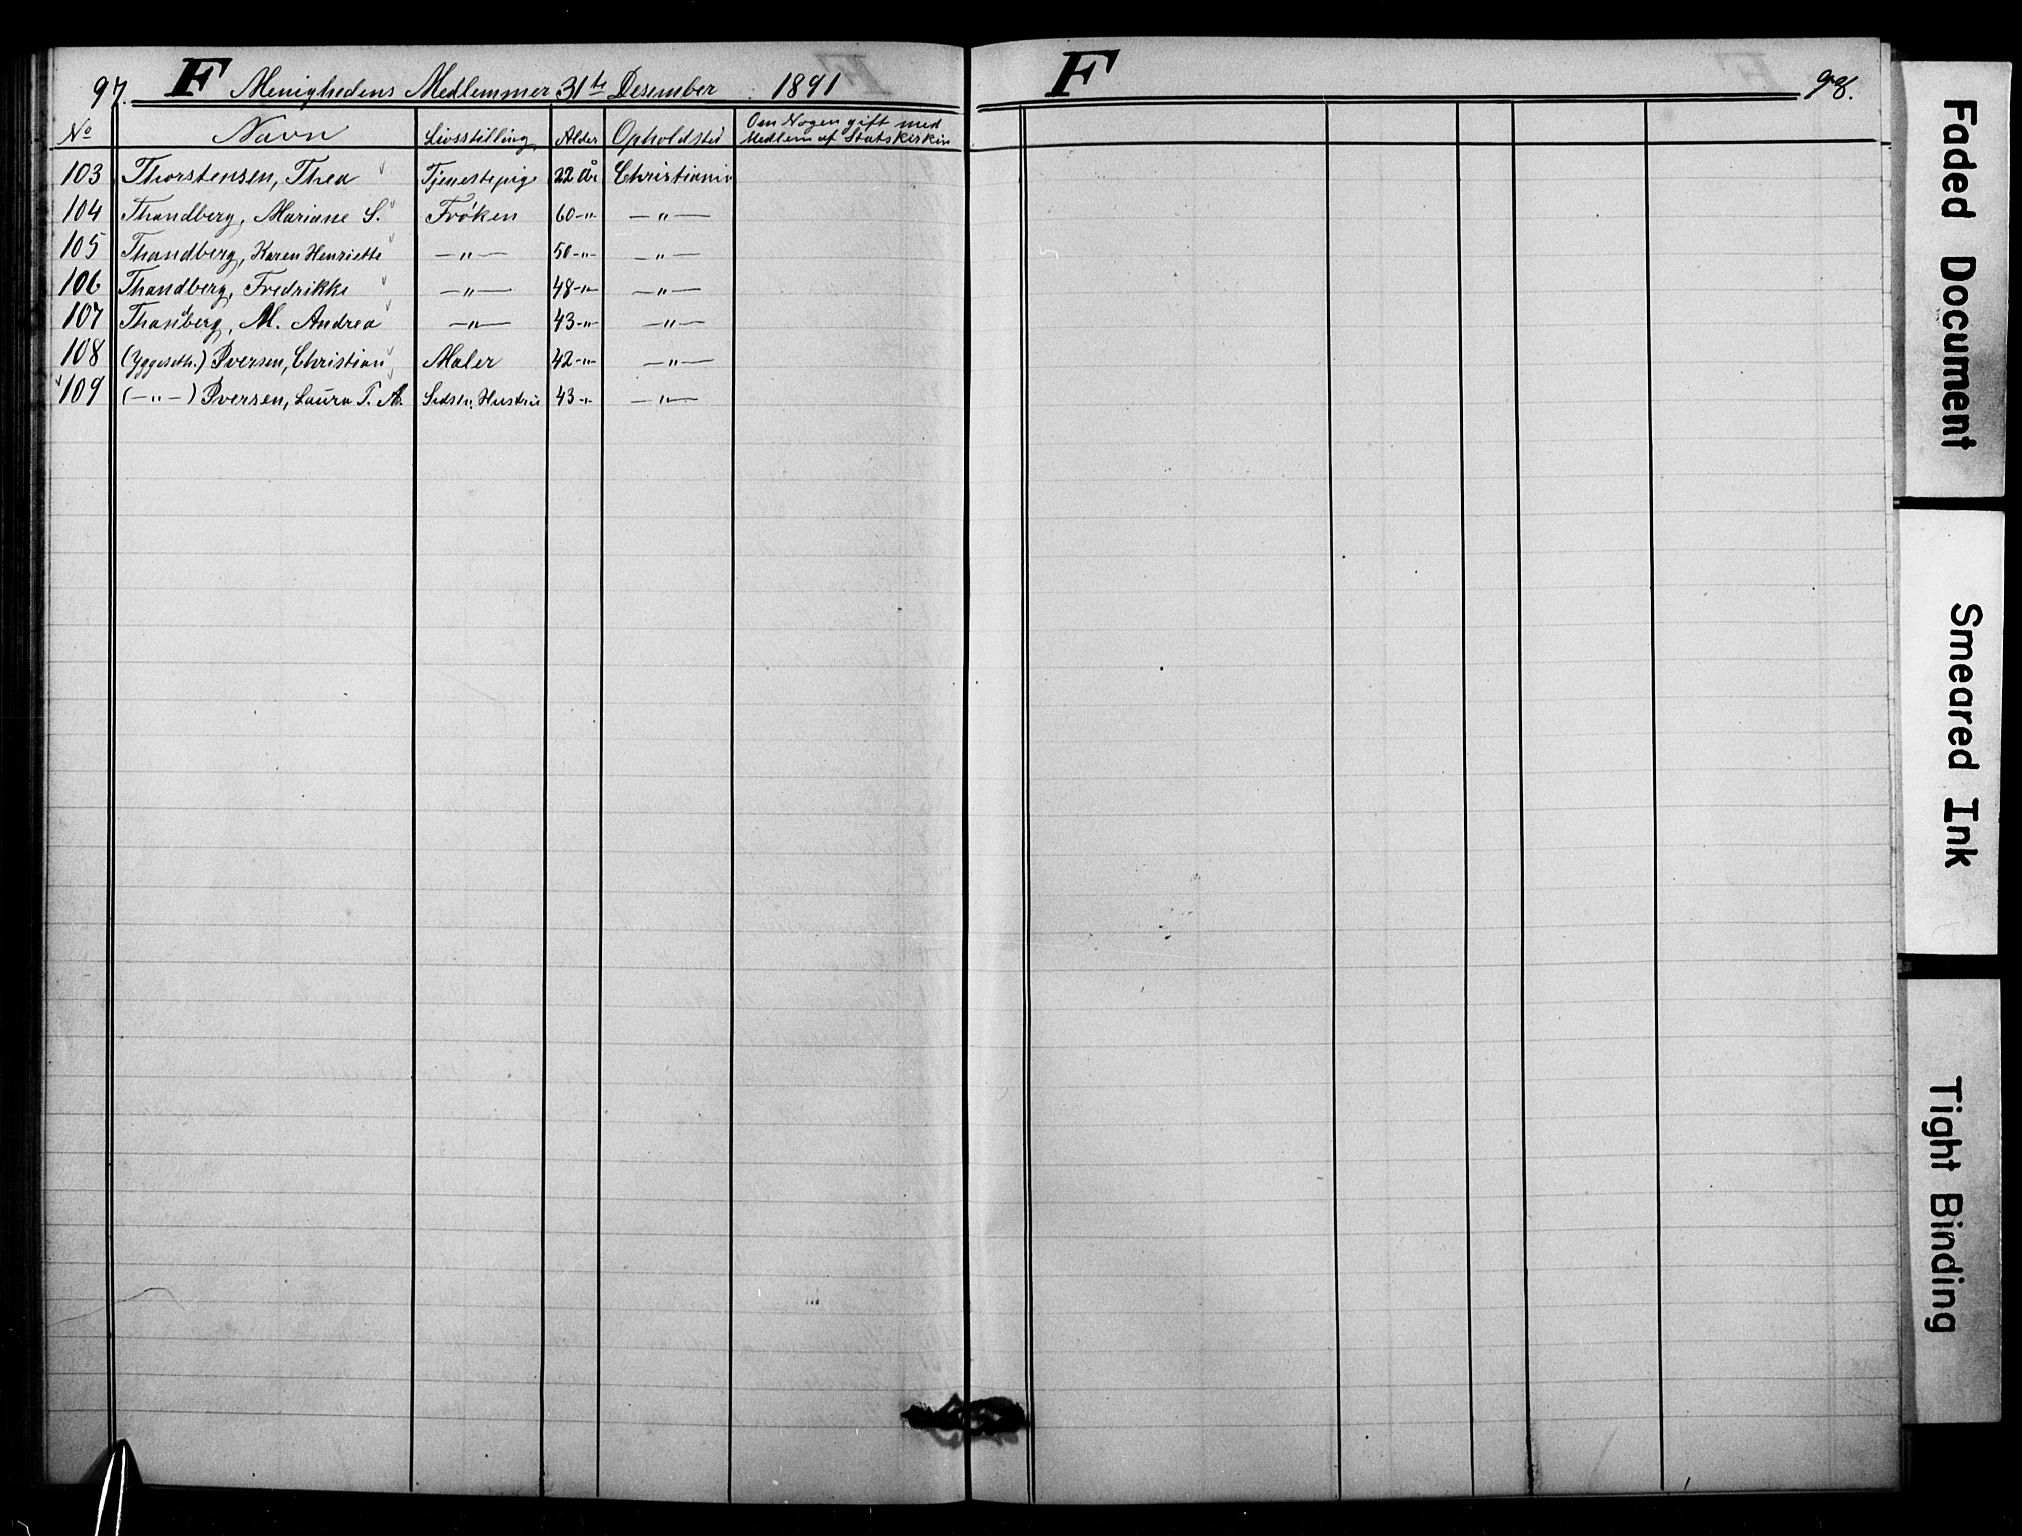 97. F Menighedens Medlemmer 31te Desember 1891
No Navn Livsstilling Alder Opholdsted Om Nogen gift med Medlem af Statskirken
103 Thorstensen, Thea Tjenestepige 22 år Christiania
104 Thandberg, Mariane S. Frøken 60 -"- -"-
105 Thandberg, Karen Henriette -"- 50 -"- -"-
106 Thandberg, Fredrikke -"- 48 -"- -"-
107 Thandberg, M. Andrea -"- 43 -"- -"-
108 (Yggeseth.) Iversen, Christian Maler 42 -"- -"-
109 (-"-) Iversen, Laura T. M. Sidstn. Hustru 43 -"- -"-
F 98.
Faded Document
Smeared Ink
Tight Binding